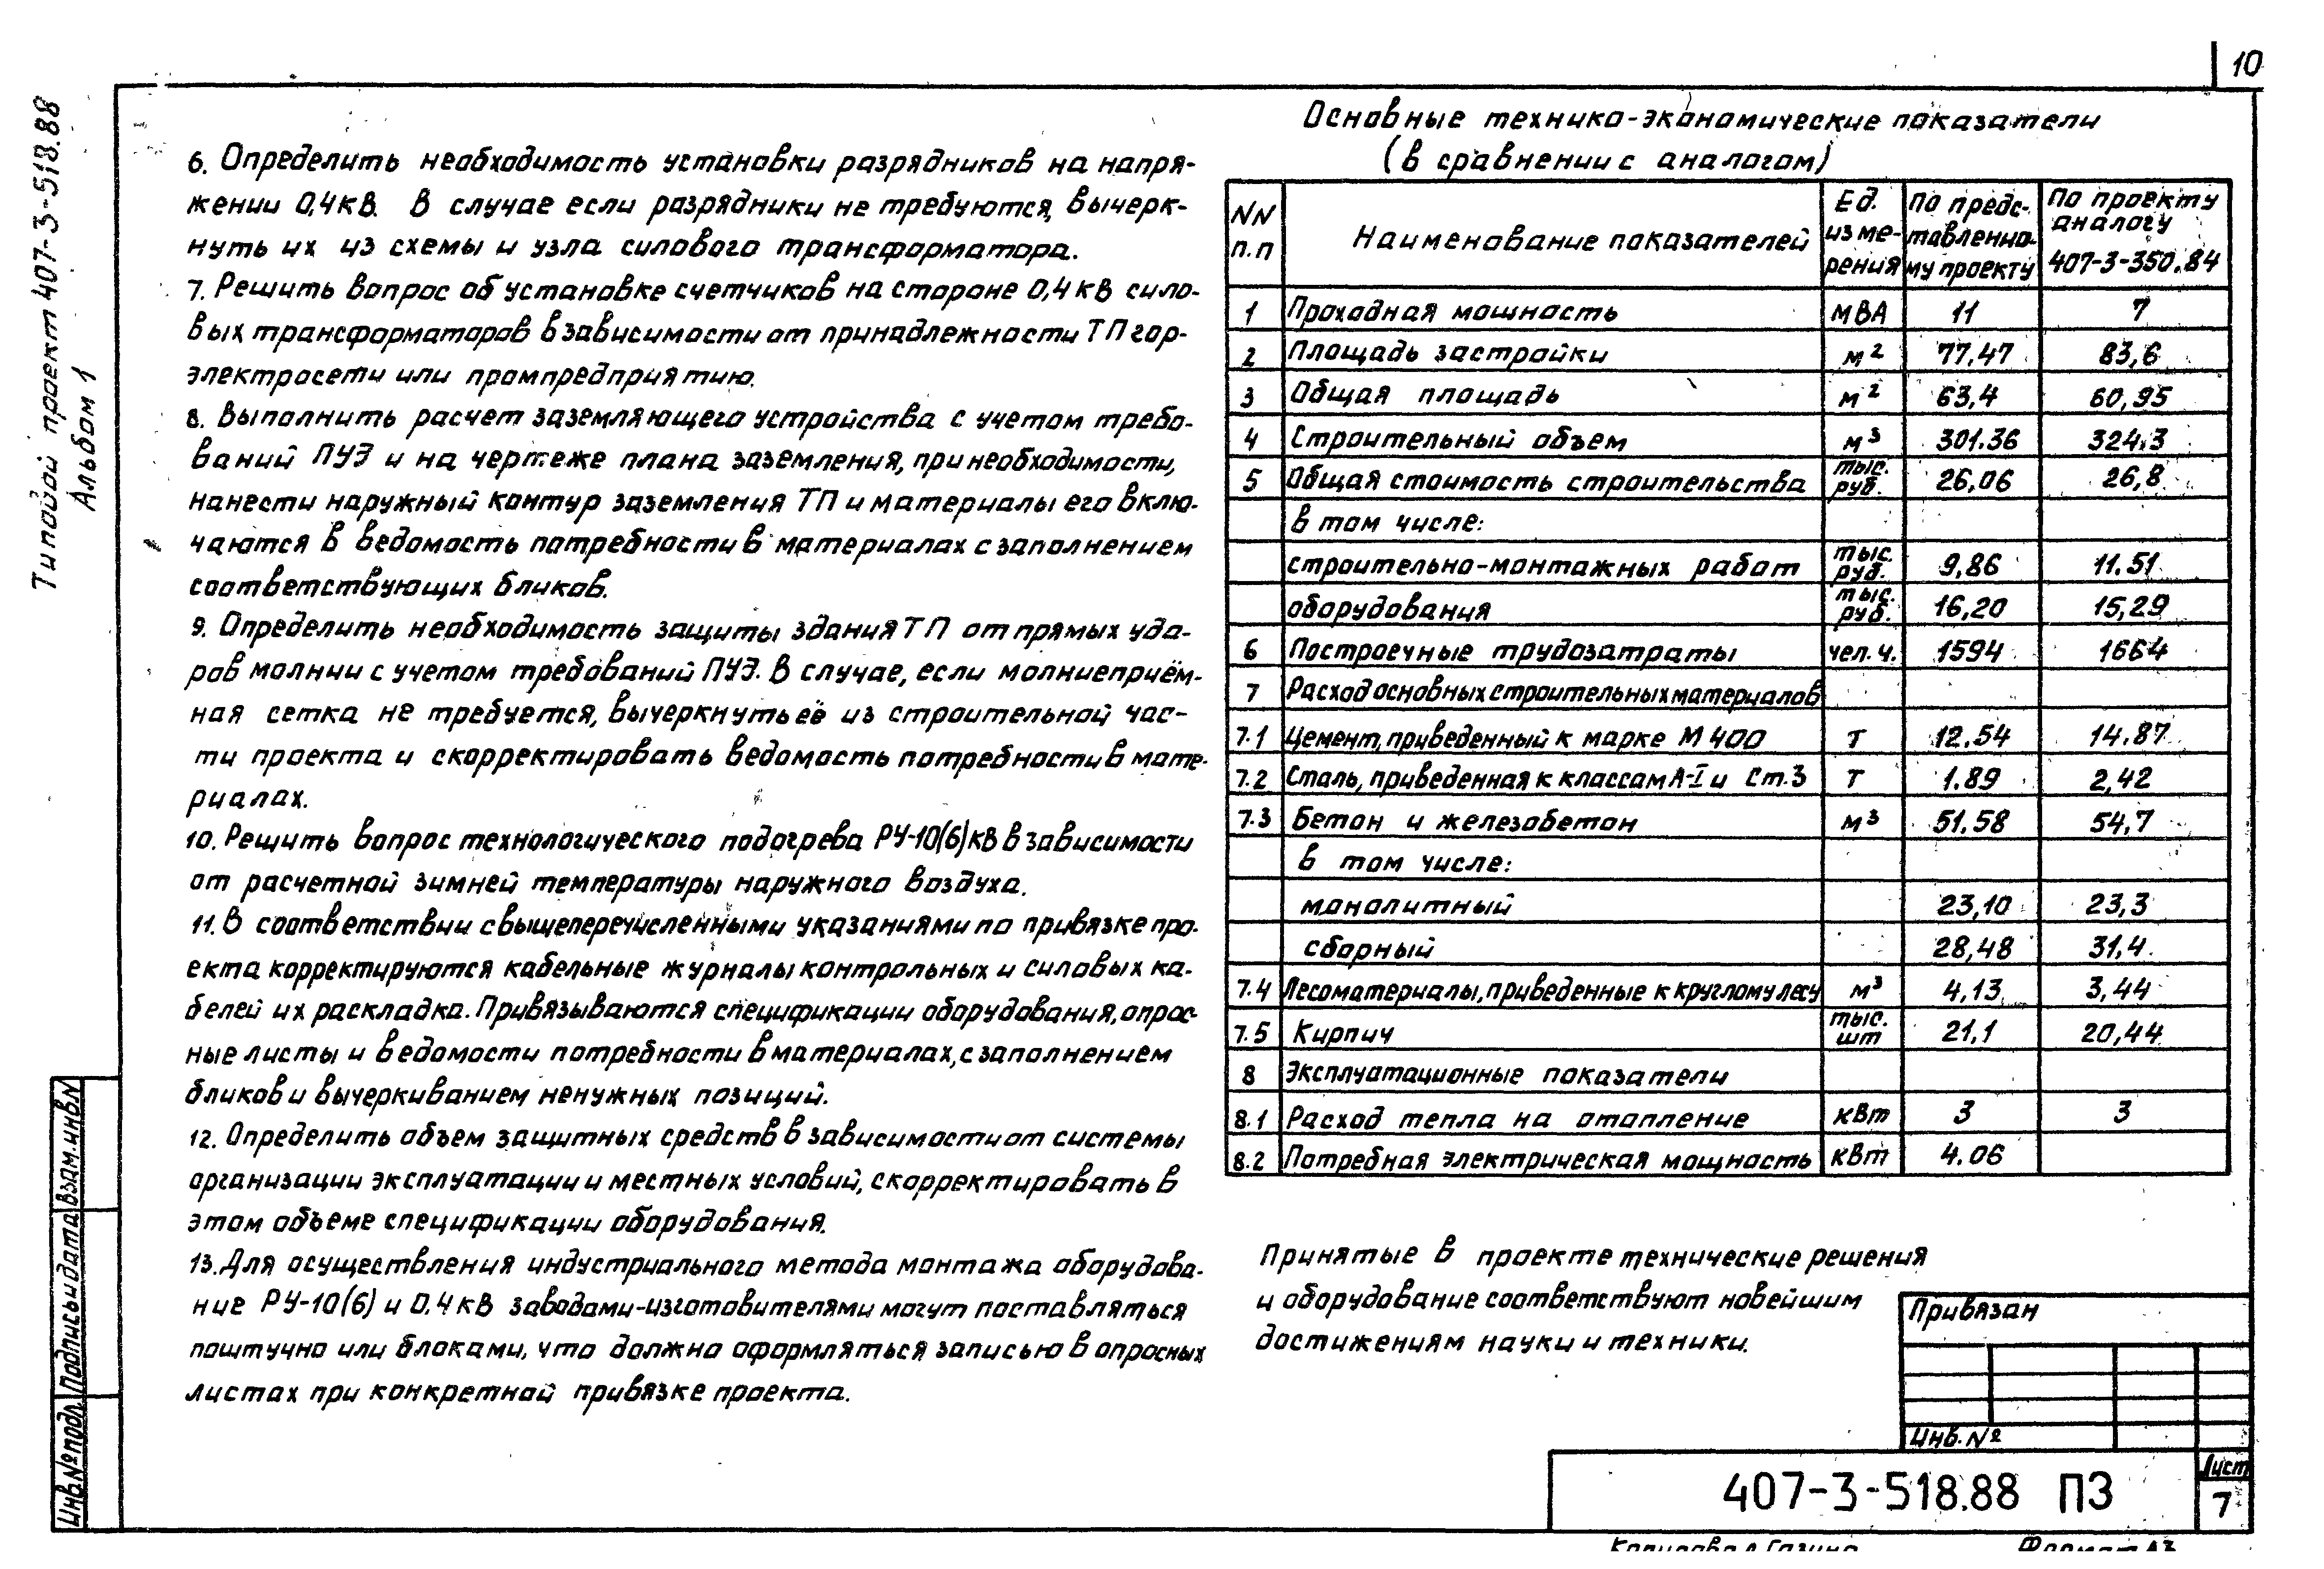 10
Типовой проект 407-3-518.88
Альбом 1
6. Определить необходимость установки разрядников на напря-
жении 0,4кВ. В случае если разрядники не требуются, вычерк-
нуть их из схемы и узла силового трансформатора.
7. Решить вопрос об установке счетчиков на стороне 0,4кВ сило-
вых трансформаторов в зависимости от принадлежности ТП гор-
электросети или промпредприятию.
8. Выполнить расчет заземляющего устройства с учетом требо-
ваний ПУЭ и на чертеже плана заземления, при необходимости,
нанести наружный контур заземления ТП и материалы его вклю-
чаются в ведомость потребности в материалах с заполнением
соответствующих бликов.
9. Определить необходимость защиты здания ТП от прямых уда-
ров молнии с учетом требований ПУЭ. В случае, если молниеприём-
ная сетка не требуется, вычеркнуть её из строительной час-
ти проекта и скорректировать ведомость потребности в мате-
риалах.
10. Решить вопрос технологического подогрева РУ-10(6)кВ в зависимости
от расчетной зимней температуры наружного воздуха.
11. В соответствии с вышеперечисленными указаниями по привязке про-
екта корректируются кабельные журналы контрольных и силовых ка-
белей их раскладка. Привязываются спецификации оборудования, опрос-
ные листы и ведомости потребности в материалах, с заполнением
бликов и вычеркиванием ненужных позиций.
12. Определить объем защитных средств в зависимости от системы
организации эксплуатации и местных условий, скорректировать в
этом объеме спецификации оборудования.
13. Для осуществления индустриального метода монтажа оборудова-
ние РУ-10(6) и 0.4кВ заводами-изготовителями могут поставляться
поштучно или блоками, что должно оформляться записью в опросных
листах при конкретной привязке проекта.
Основные технико-экономические показатели
(в сравнении с аналогом)
NN п.п Наименование показателей Ед. изме-рения По предс-тавленно-му проекту По проекту аналогу 407-3-350.84
1 Проходная мощность МВА 11 7
2 Площадь застройки м² 77,47 83,6
3 Общая площадь м² 63,4 60,95
4 Строительный объем м³ 301.36 324.3
5 Общая стоимость строительства тыс. руб. 26,06 26,8
в том числе:
строительно-монтажных работ тыс. руб. 9,86 11.51
оборудования тыс. руб. 16,20 15,29
6 Построечные трудозатраты чел.ч. 1594 1664
7 Расход основных строительных материалов
7.1 Цемент, приведенный к марке М 400 Т 12.54 14.87
7.2 Сталь, приведенная к классам А-I и Ст.3 Т 1.89 2,42
7.3 Бетон и железобетон м³ 51.58 54,7
в том числе:
монолитный 23,10 23,3
сборный 28,48 31,4
7.4 Лесоматериалы, приведенные к круглому лесу м³ 4,13 3,44
7.5 Кирпич тыс. шт 21,1 20,44
8 Эксплуатационные показатели
8.1 Расход тепла на отопление кВт 3 3
8.2 Потребная электрическая мощность кВт 4.06
Принятые в проекте технические решения
и оборудование соответствуют новейшим
достижениям науки и техники.
Привязан
Инв. №
407-3-518.88 ПЗ
Лист
7
Инв № подл. Подпись и дата Взам.инв N